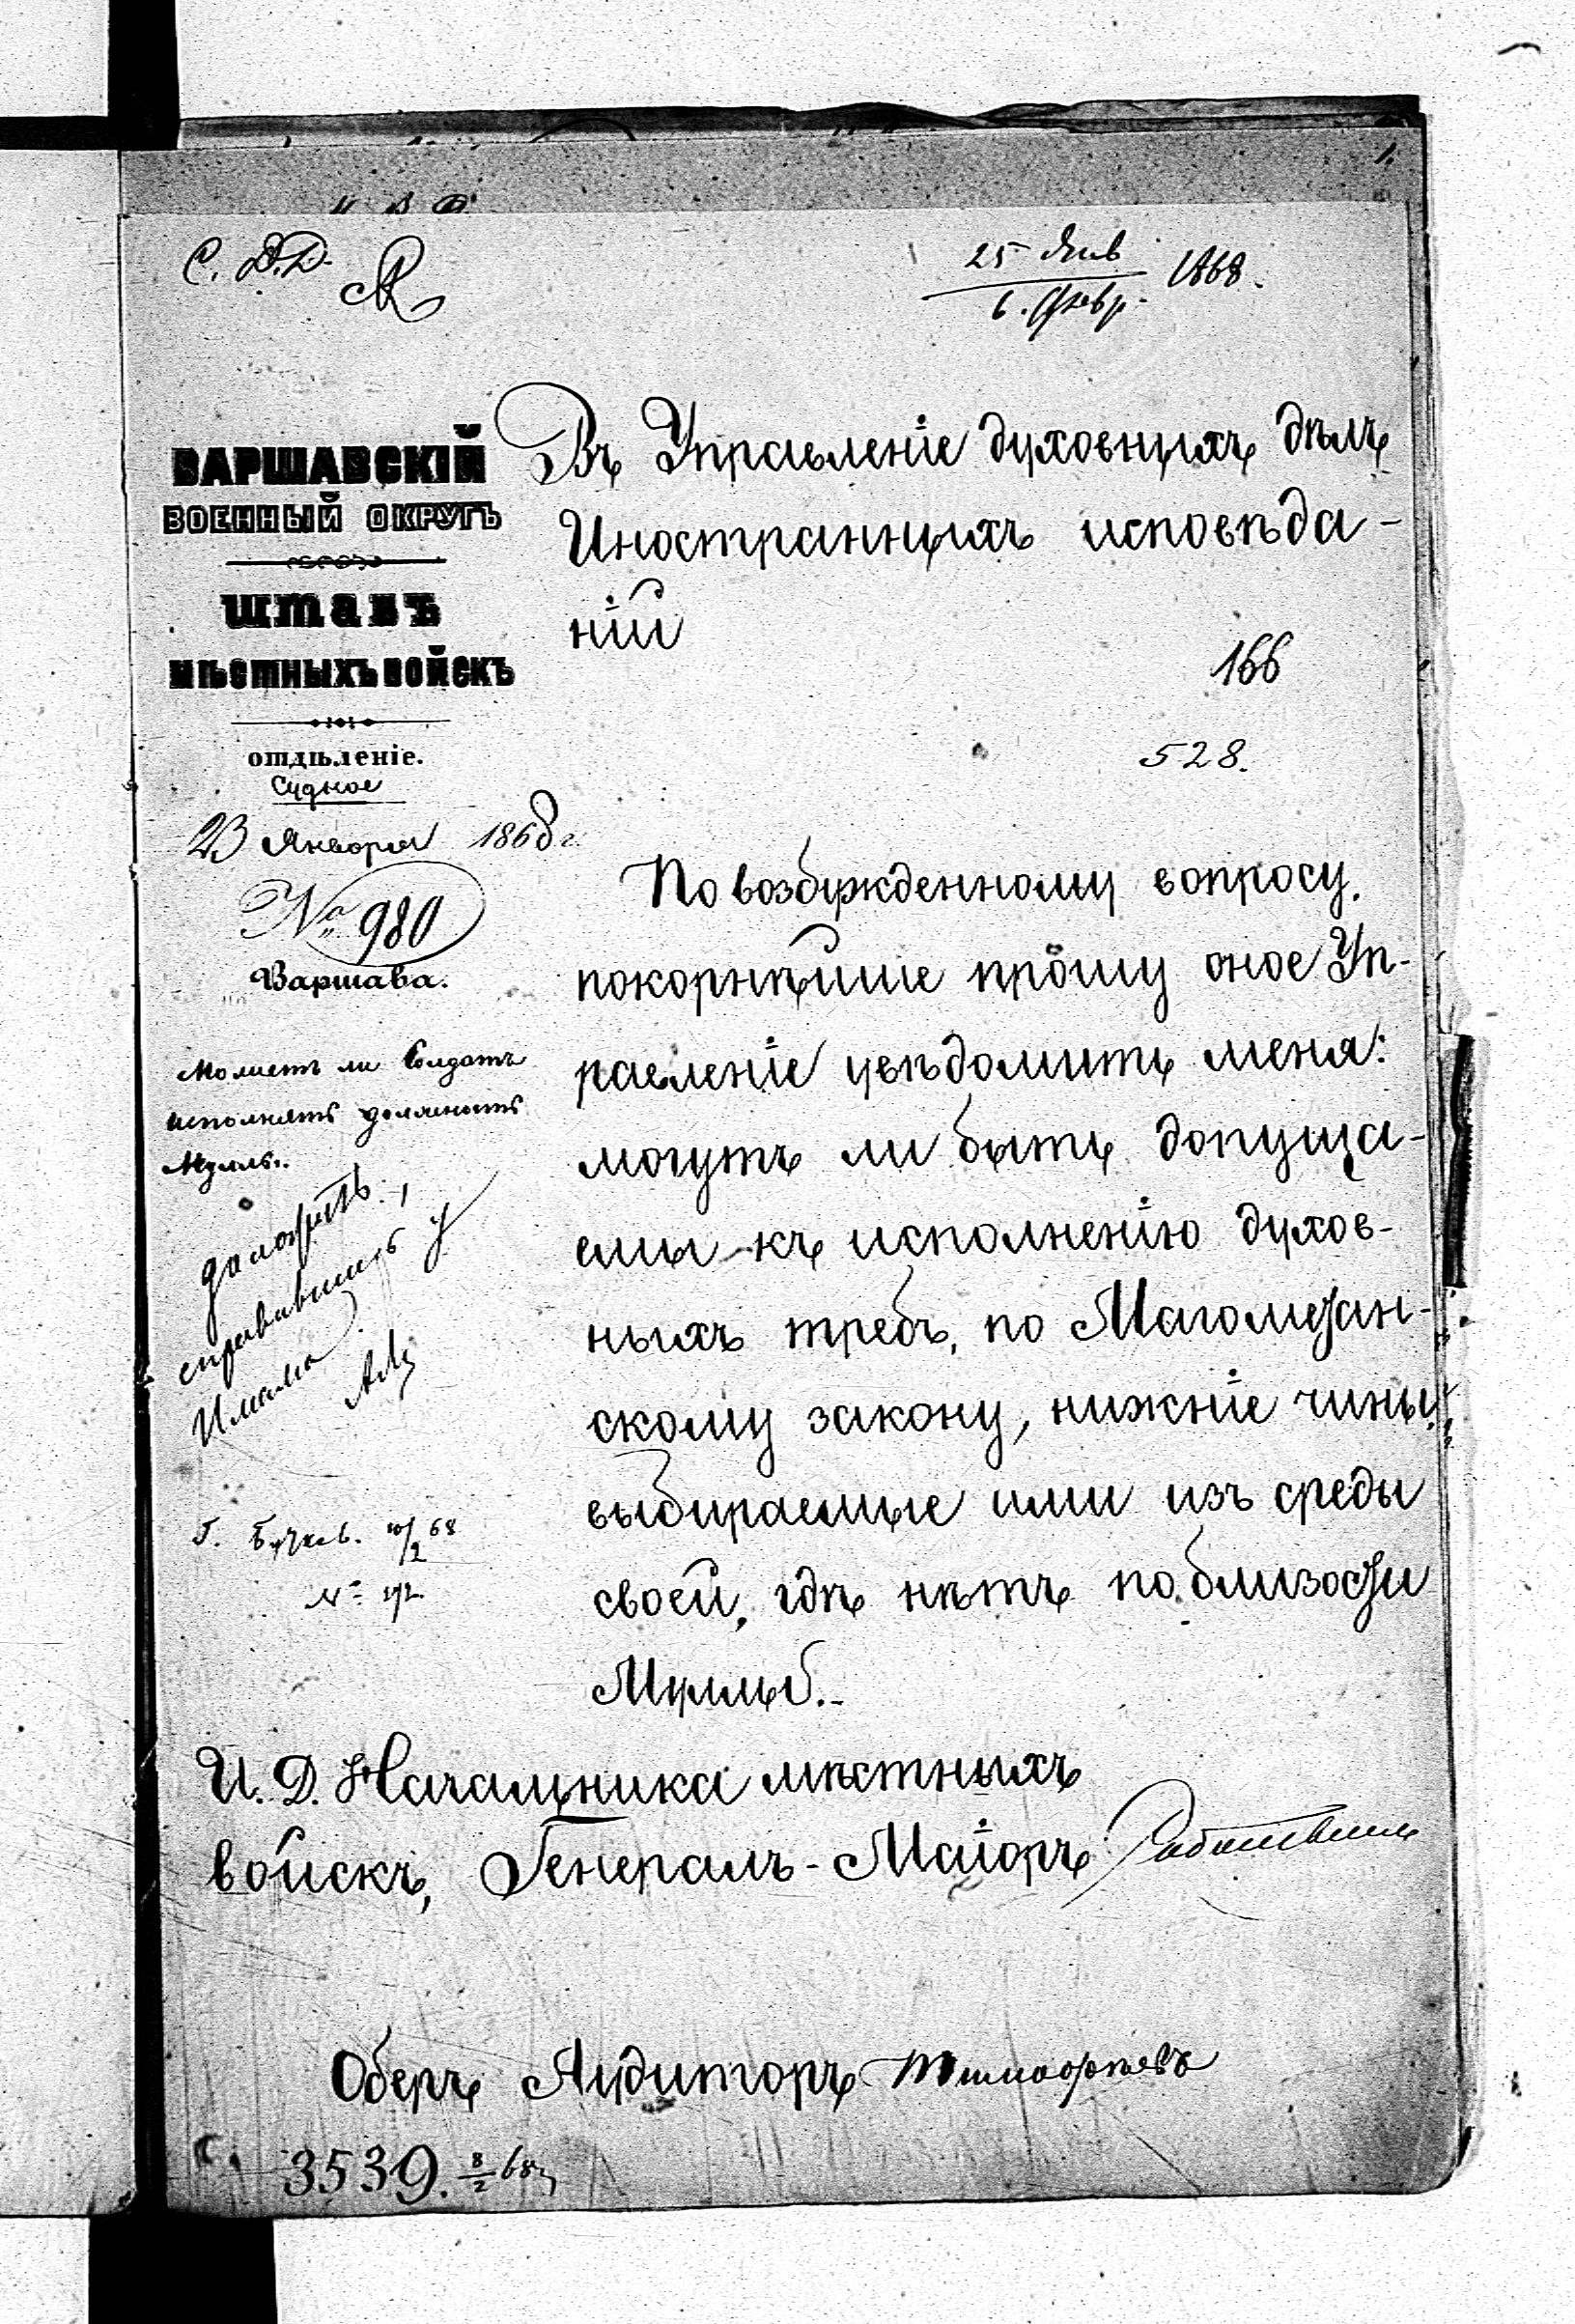 1.
С. Д.Д.
25 Янв
6. Февр. 1868.
ВАРШАВСКІЙ
ВОЕННЫЙ ОКРУГЪ
ШТАБЪ
МѢСТНЫХЪ ВОЙСКЪ
отдѣленіе.
Судное
23 Января 1868 г.
№ 980
Варшава.
Въ Управленіе духовныхъ дѣлъ
Иностранныхъ исповѣда-
ній
166
528.
Можетъ ли Солдатъ
исполнять должность
Муллы.
доложить,
справившись у
Имама
По возбужденному вопросу,
покорнѣйше прошу оное Уп-
равленіе увѣдомить меня:
могутъ ли быть допуща-
емы къ исполненію духов-
ныхъ требъ, по Магометан-
скому закону, нижніе чины,
выбираемые ими изъ среды
своей, гдѣ нѣтъ по близости
Муллы.
10/2 68
И. Д. Начальника мѣстныхъ
войскъ, Генералъ-Маіоръ
Оберъ Аудиторъ Тимофѣевъ
3539. 8/2 68